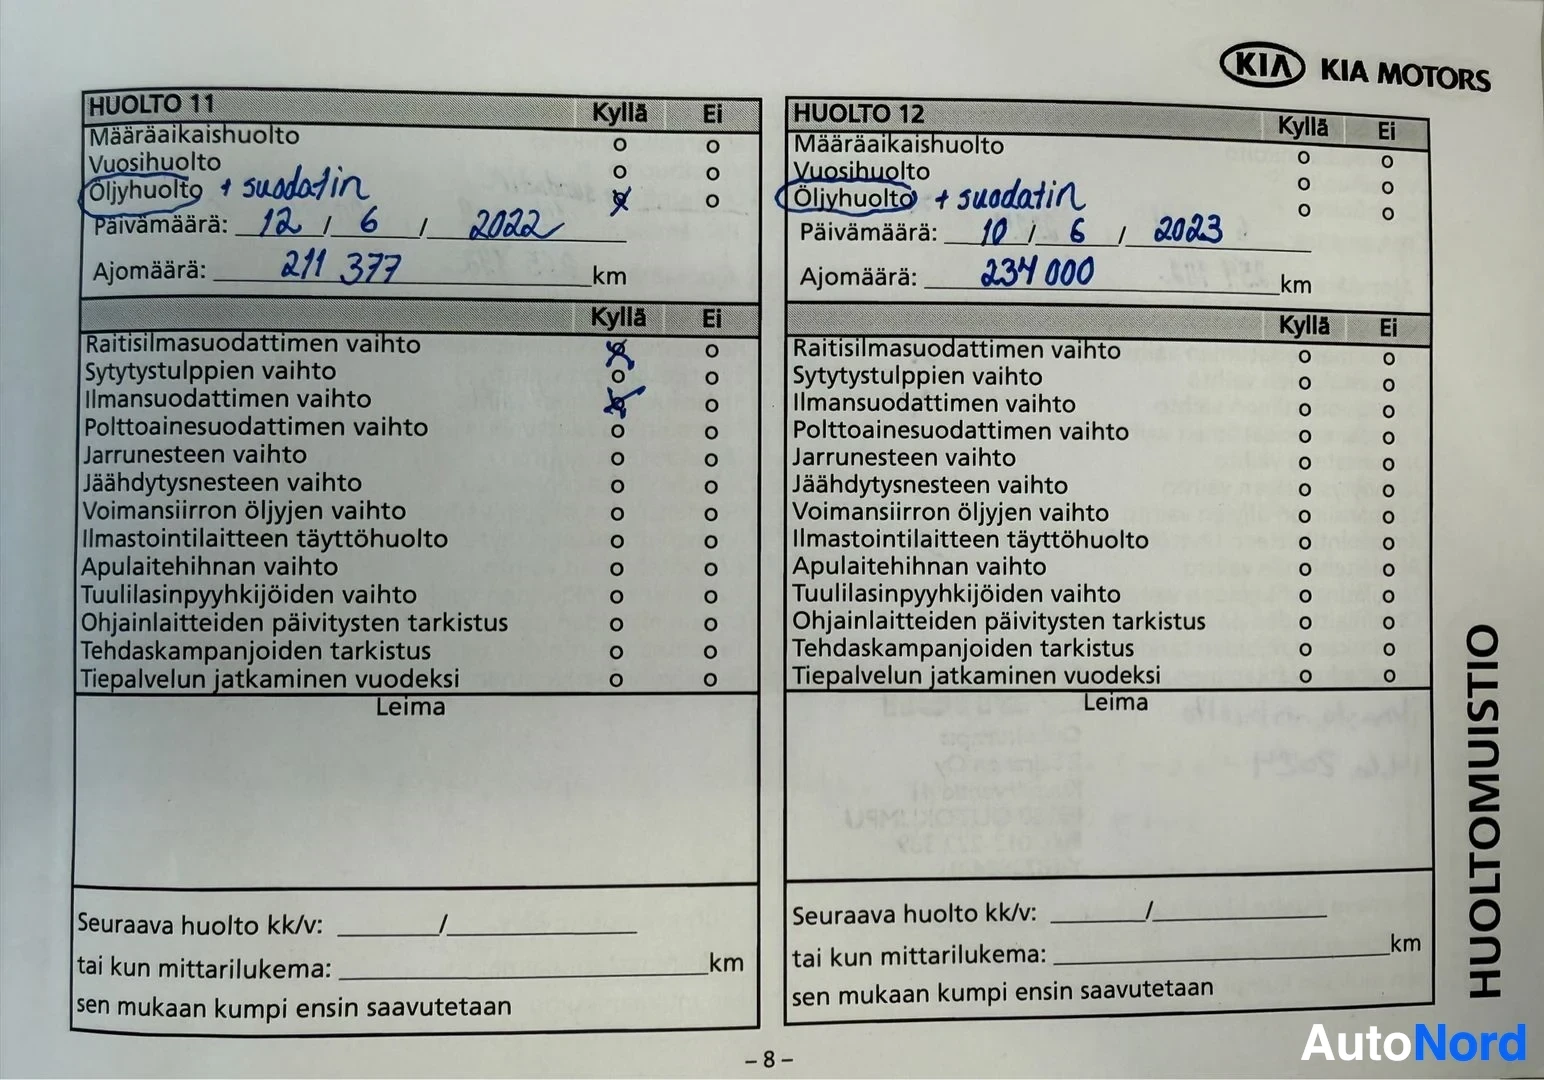 KIA KIA MOTORS
HUOLTO 11 Kyllä Ei
Määräaikaishuolto o o
Vuosihuolto o o
Öljyhuolto + suodatin x o
Päivämäärä: 12 / 6 / 2022
Ajomäärä: 211 377 km
Kyllä Ei
Raitisilmasuodattimen vaihto x o
Sytytystulppien vaihto o o
Ilmansuodattimen vaihto x o
Polttoainesuodattimen vaihto o o
Jarrunesteen vaihto o o
Jäähdytysnesteen vaihto o o
Voimansiirron öljyjen vaihto o o
Ilmastointilaitteen täyttöhuolto o o
Apulaitehihnan vaihto o o
Tuulilasinpyyhkijöiden vaihto o o
Ohjainlaitteiden päivitysten tarkistus o o
Tehdaskampanjoiden tarkistus o o
Tiepalvelun jatkaminen vuodeksi o o
Leima
Seuraava huolto kk/v: ______/__________
tai kun mittarilukema: ____________________ km
sen mukaan kumpi ensin saavutetaan
HUOLTO 12 Kyllä Ei
Määräaikaishuolto o o
Vuosihuolto o o
Öljyhuolto + suodatin o o
Päivämäärä: 10 / 6 / 2023
Ajomäärä: 234 000 km
Kyllä Ei
Raitisilmasuodattimen vaihto o o
Sytytystulppien vaihto o o
Ilmansuodattimen vaihto o o
Polttoainesuodattimen vaihto o o
Jarrunesteen vaihto o o
Jäähdytysnesteen vaihto o o
Voimansiirron öljyjen vaihto o o
Ilmastointilaitteen täyttöhuolto o o
Apulaitehihnan vaihto o o
Tuulilasinpyyhkijöiden vaihto o o
Ohjainlaitteiden päivitysten tarkistus o o
Tehdaskampanjoiden tarkistus o o
Tiepalvelun jatkaminen vuodeksi o o
Leima
Seuraava huolto kk/v: ______/__________
tai kun mittarilukema: ____________________ km
sen mukaan kumpi ensin saavutetaan
HUOLTOMUISTIO
– 8 –
AutoNord